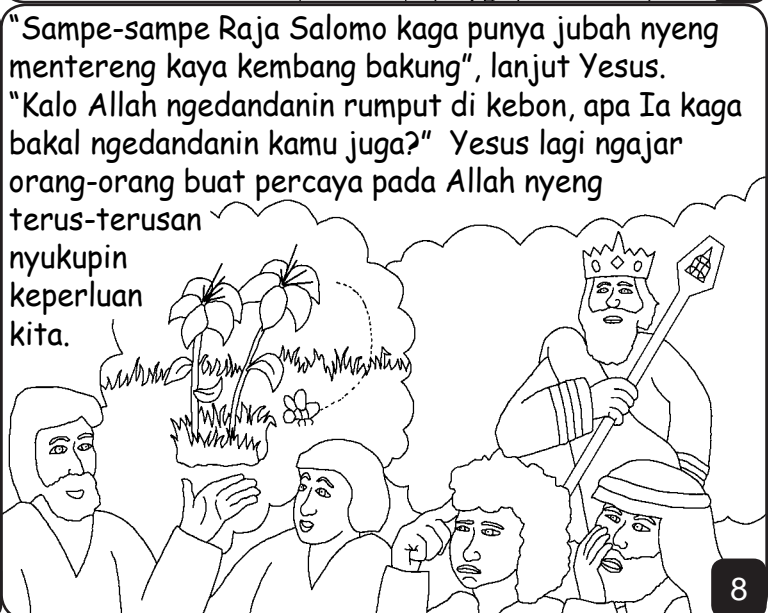 “Sampe-sampe Raja Salomo kaga punya jubah nyeng
mentereng kaya kembang bakung”, lanjut Yesus.
“Kalo Allah ngedandanin rumput di kebon, apa Ia kaga
bakal ngedandanin kamu juga?” Yesus lagi ngajar
orang-orang buat percaya pada Allah nyeng
terus-terusan
nyukupin
keperluan
kita.
8